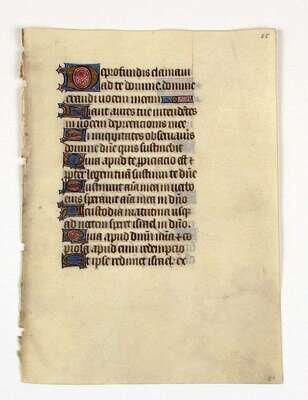 De profundis clamavi
ad te domine domine
exaudi vocem meam
Fiant aures tue intendētes
in vocem deprecationis mee
Si iniquitates observaveris
domine dñe quis sustinebit
Quia apud te ꝓpiciatio est et
propter legem tuā sustinui te dñe
Sustinuit aīa mea in verbo
eius speravit aīa mea in dño
A custodia matutina usqꝫ
ad noctem speret israel in dño.
Quia apud dñm mīa et co
piosa apud eum redemptio
Et ipse redimet israel ex